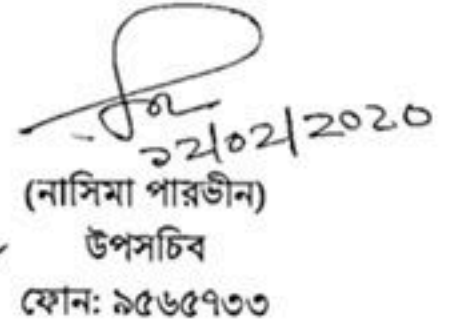 ১২/০২/২০২০
(নাসিমা পারভীন)
উপসচিব
ফোন: ৯৫৬৫৭৩৩